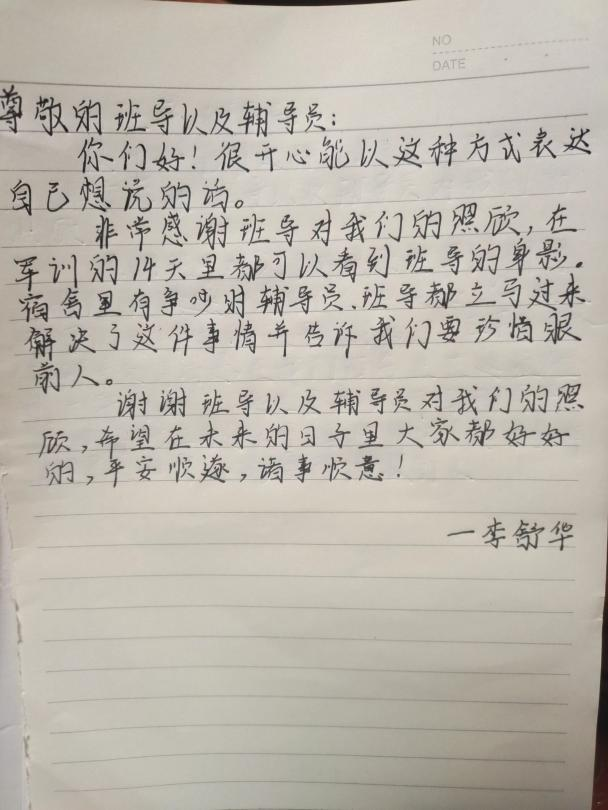 NO
DATE
尊敬的班导以及辅导员:
你们好!很开心能以这种方式表达
自己想说的话。
非常感谢班导对我们的照顾,在
军训的14天里都可以看到班导的身影。
宿舍里有争吵时辅导员、班导都立马过来
解决了这件事情并告诉我们要珍惜眼
前人。
谢谢班导以及辅导员对我们的照
顾,希望在未来的日子里大家都好好
的,平安顺遂,诸事顺意!
一李舒华